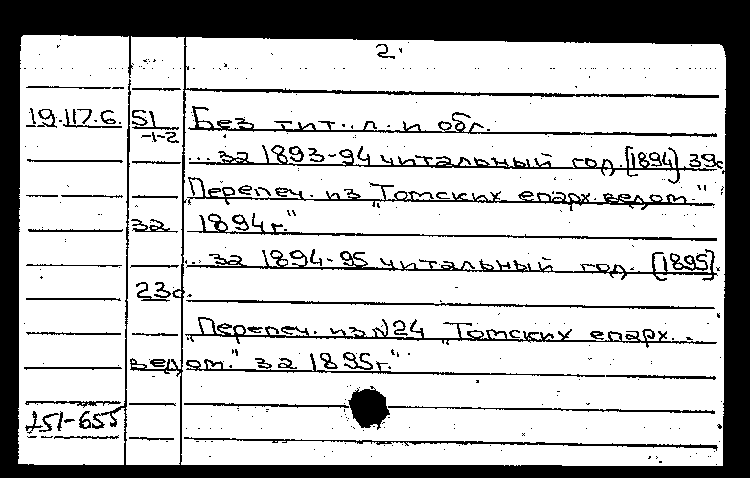 2.
19.117.6. 51 Без тит. л. и обл.
-1-2
...за 1893-94 читальный год. [1894]. 39с
„Перепеч. из „Томских епарх. ведом."
за 1894г."
...за 1894-95 читальный год. [1895].
23с.
„Перепеч. из N24 „Томских епарх.
ведом." за 1895г."
251-655